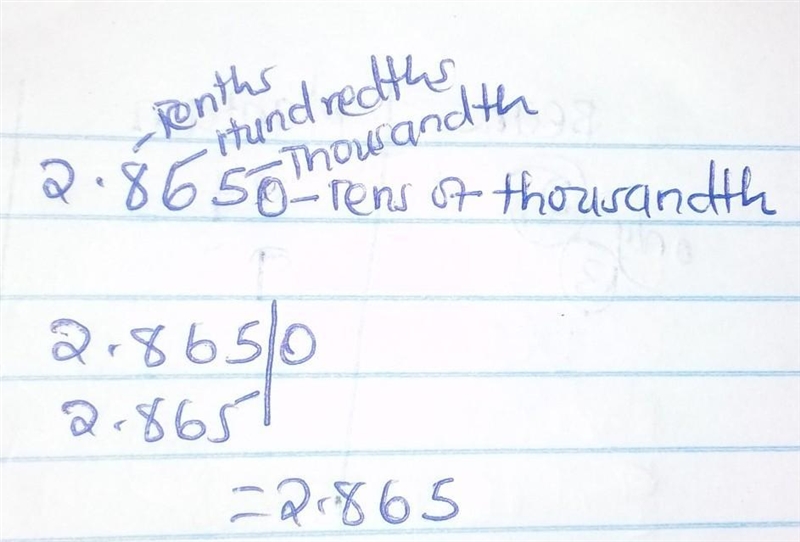 Tenths
Hundredths
Thousandth
2.8650 - Tens of thousandth
2.865|0
2.865
= 2.865